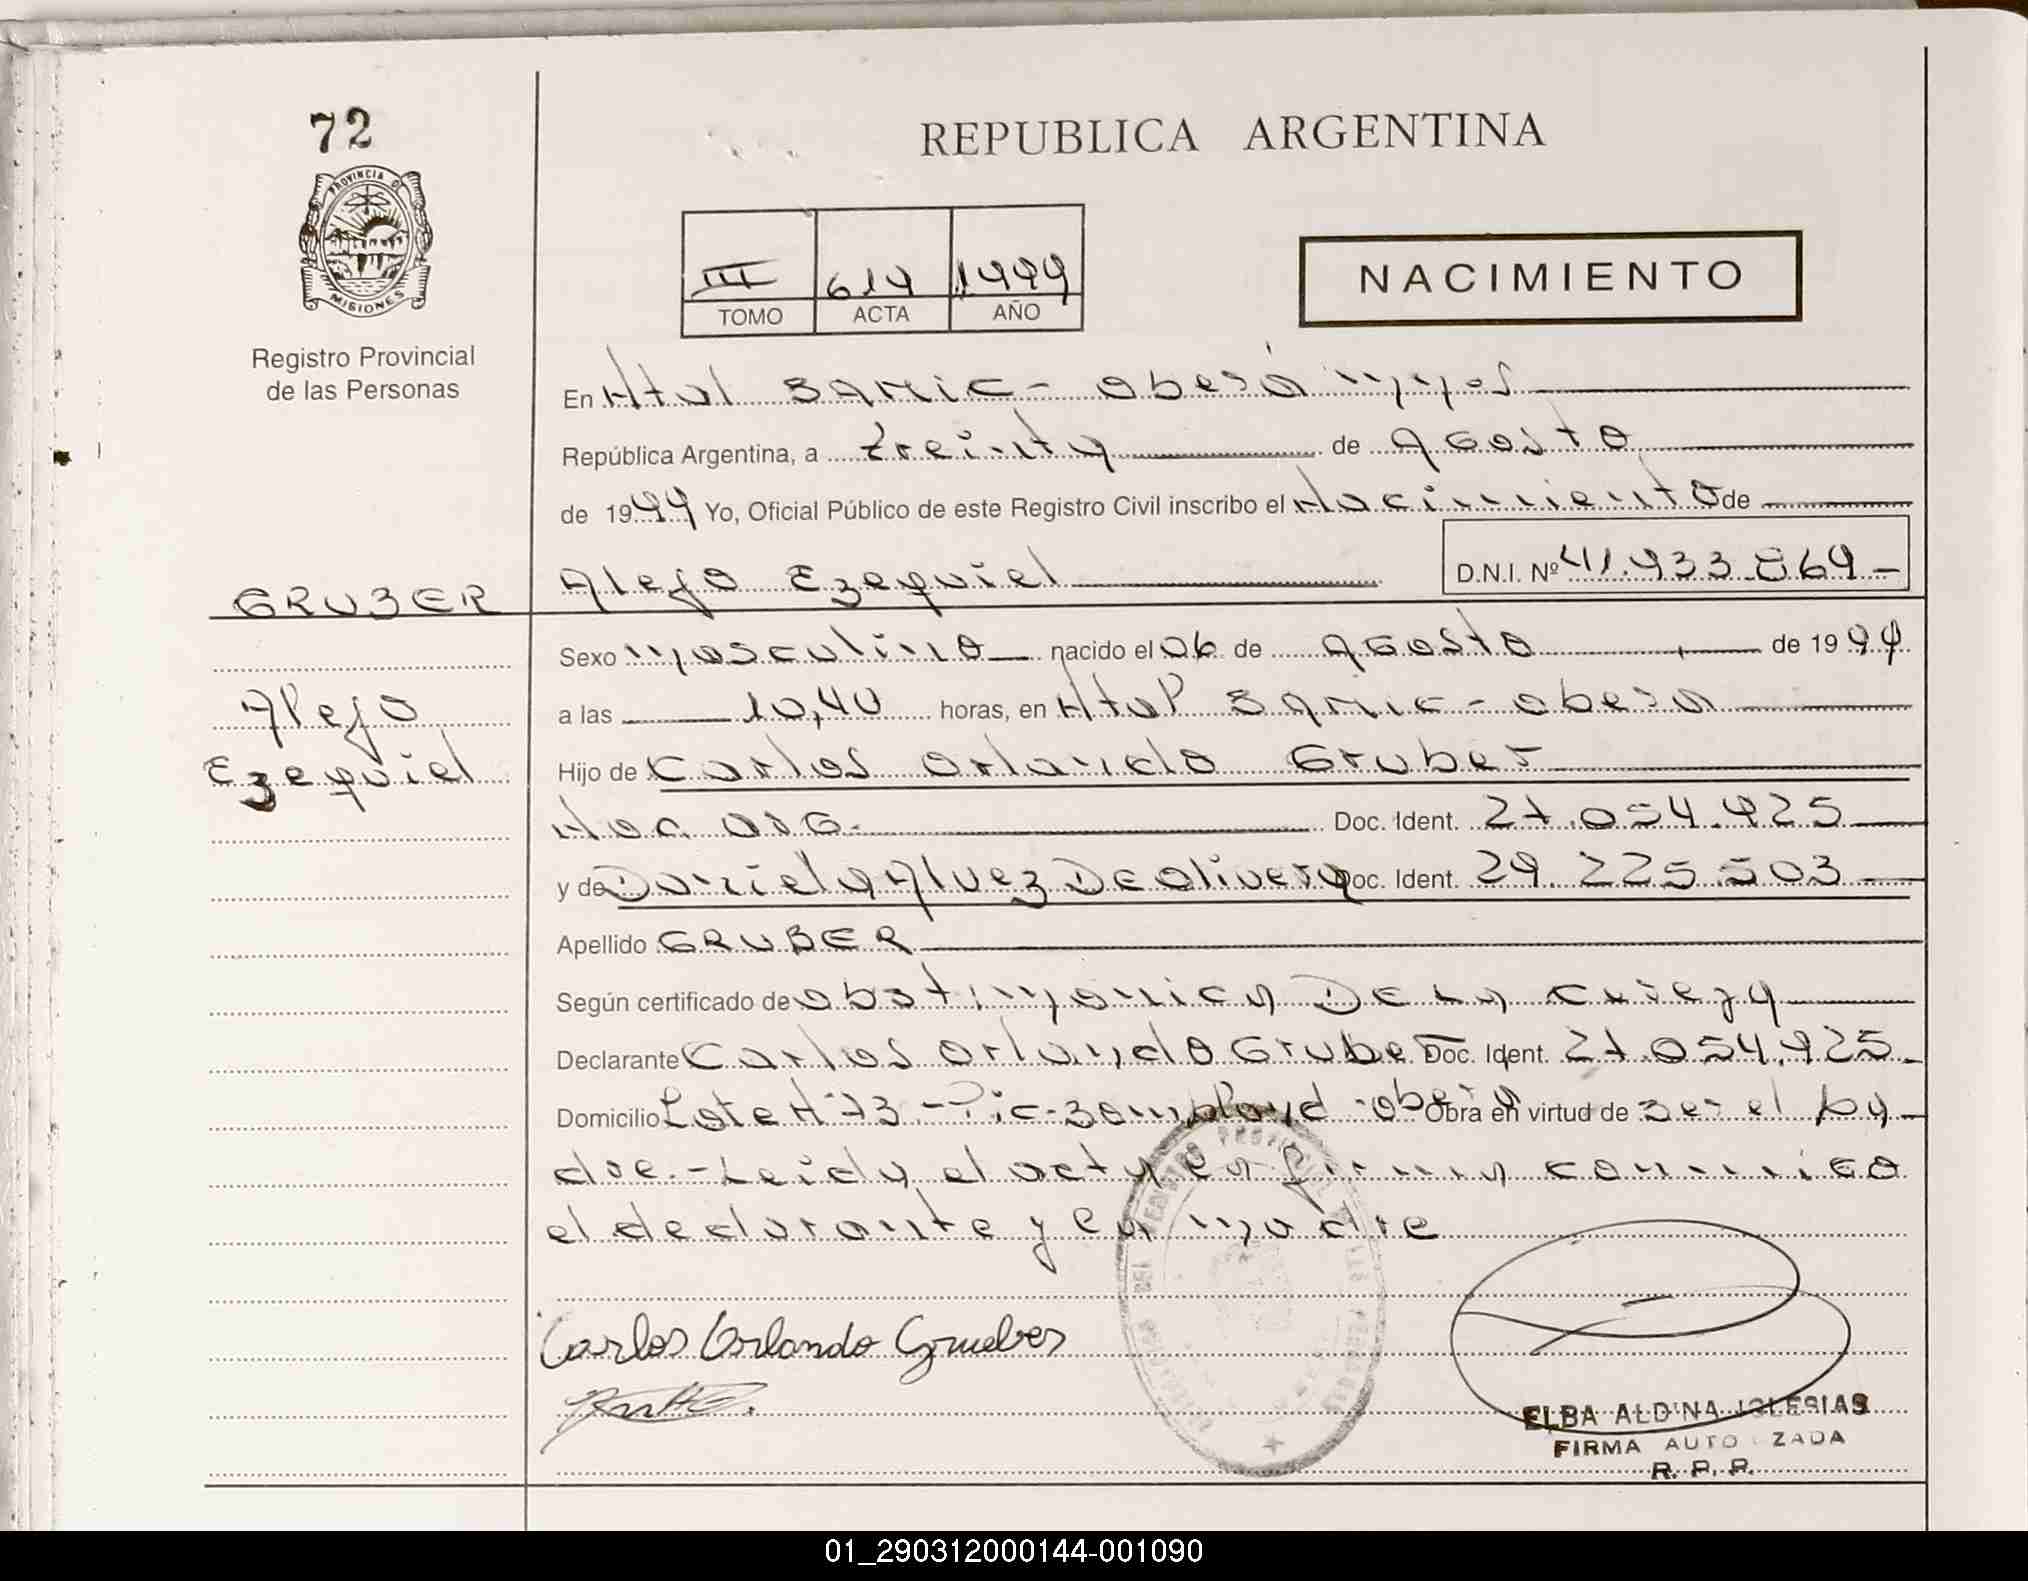 72
PROVINCIA DE
MISIONES
Registro Provincial
de las Personas
REPUBLICA ARGENTINA
III 614 1999
TOMO ACTA AÑO
NACIMIENTO
En Htal Samic - Oberá Mnes
República Argentina, a treinta de Agosto
de 1999 Yo, Oficial Público de este Registro Civil inscribo el Nacimiento de
GRUBER Alejo Ezequiel D.N.I. Nº 41.933.869-
Sexo masculino nacido el 06 de Agosto de 1999
Alejo
Ezequiel
a las 10,40 horas, en Htal Samic - Obera
Hijo de Carlos Orlando Gruber
Nac. arg. Doc. Ident. 27.054.925
y de Daniela Alvez De olivera Doc. Ident. 29.225.503
Apellido GRUBER
Según certificado de De La
Declarante Carlos Orlando Gruber Doc. Ident. 27.054.925-
Domicilio Lote Nº 73 - Pic. Bompland - Obera Obra en virtud de ser el pa
dre.- Leida el acta la firman conmigo
el declarante y la madre
Carlos Orlando Grueber
ELBA ALDINA IGLESIAS
FIRMA AUTORIZADA
R. P. P.
01_290312000144-001090